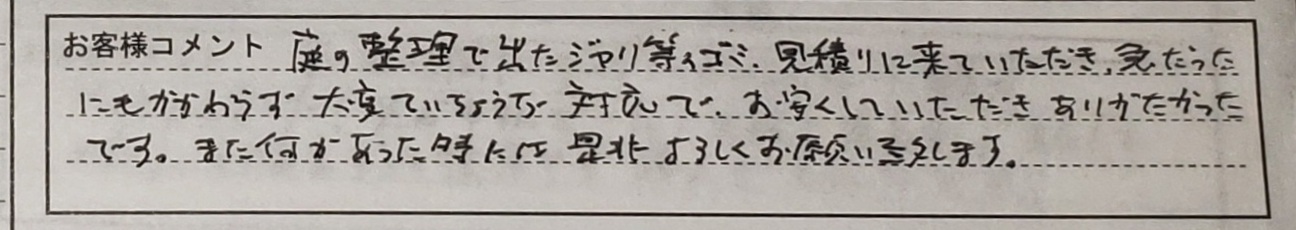 お客様コメント 庭の整理で出たジャリ等々ゴミ、見積りに来ていただき、急だった
にもかかわらず 大変ていちょうな対応で、お安くしていただき ありがたかった
です。また何かあった時には 是非よろしくお願い致します。